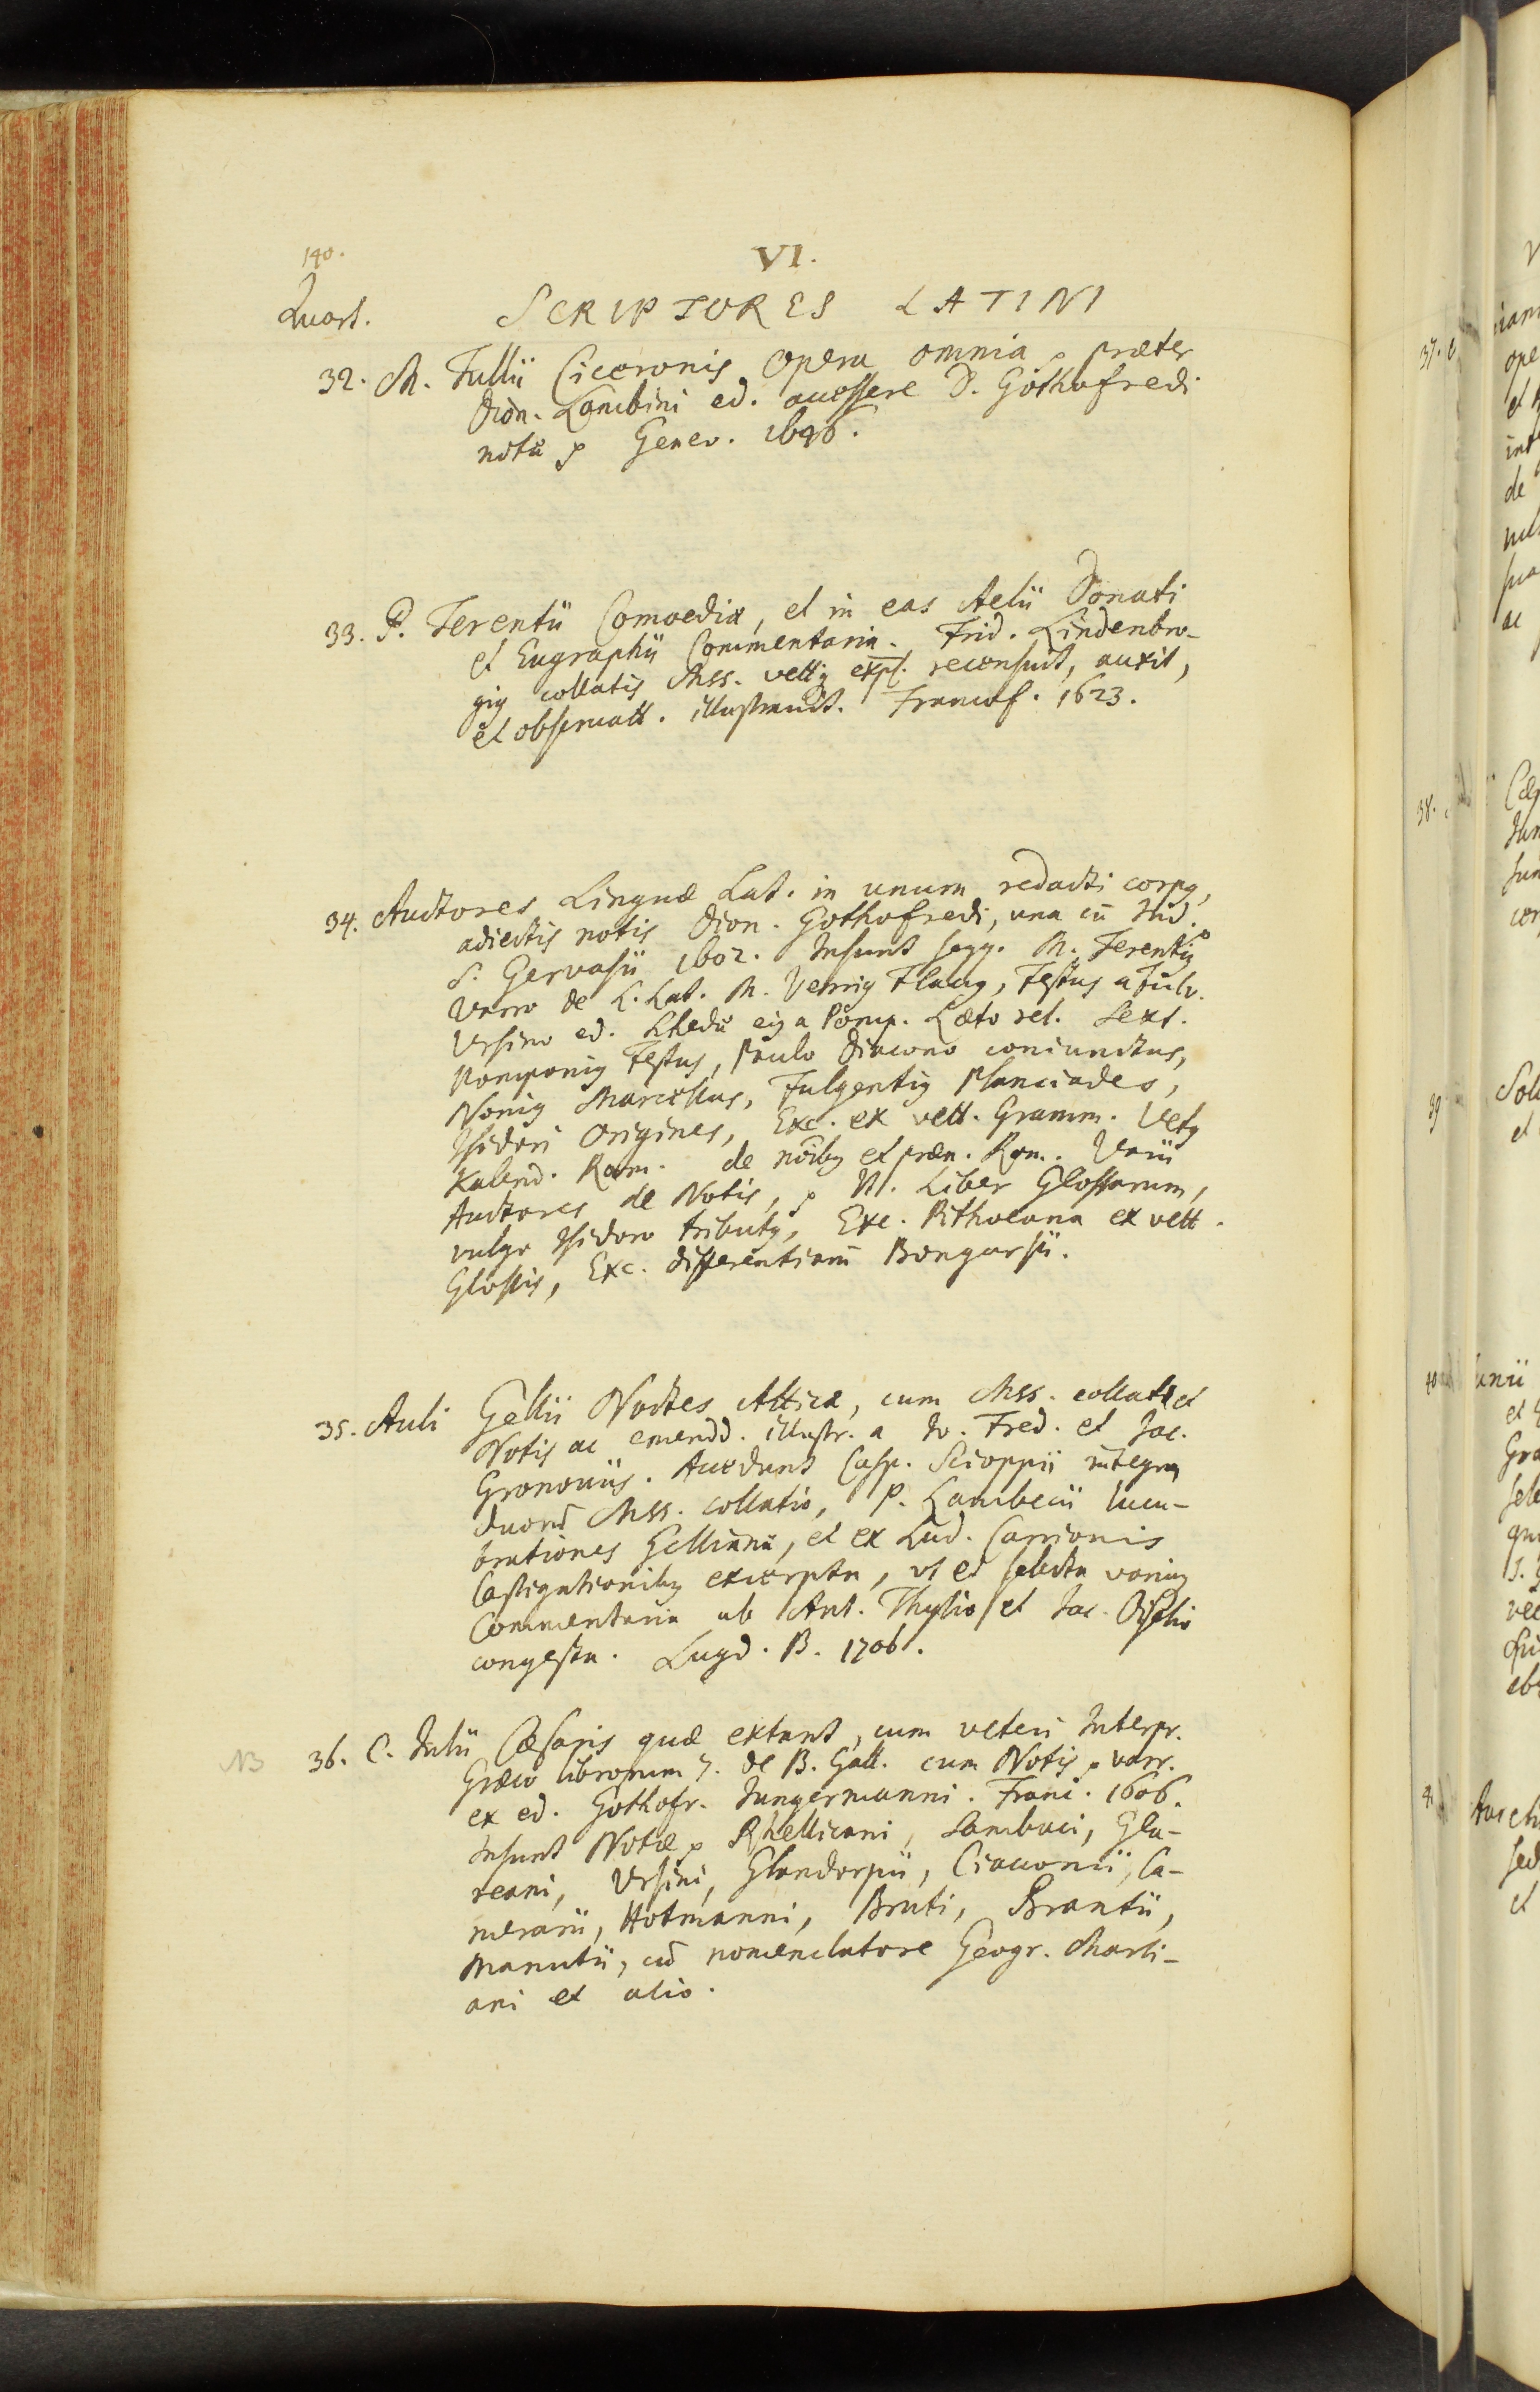 140.
VI.
Quart.
SCRIPTORES LATINI
32. M. Tullii Ciceronis Opera omnia, præter
Dion. Lambini ed. accessere D. Gothofredi
notæ Genev. 1646.
33. P. Terentii Comoediæ, et in eas Aelii Donati
et Eugraphii Commentaria. Frid. Lindenbro-
gig collatis Mss. vettq expl. recensuit, auxit,
et obseruatt. illustrauit. Francof. 1623.
34. Auctores Linguæ Lat. in unum redacti corpq,
adiectis notis Dion. Gothofredi, una cū Ind.
S. Gervasii 1602. Insunt seqq. M. Terentiq
Varro de L. Lat. M. Verriq Flacq, Festus a Fulv.
Vrsino ed. Schedæ eiq a Pomp. Læto rel. Sext.
Pomponiq Festus, Paulo Diacono coniunctus,
Noniq Marcellus, Fulgentiq Planciades,
Isidori Origines, Exc. ex vett. Gramm. Vetq
Kalend. Rom. de nōibq et præn. Rom. Varii
Auctores de Notis, N. Liber Glossarum,
vulgo Isidoro tributq, Exc. Pithoeana ex vett.
Glossis, Exc. differentiarū Bongarsii.
35. Auli Gellii Noctes Atticæ, cum Mss. collatæ et
Notis ac emendd. illustr. a Io. Fred. et Jac.
Gronouiis. Accedunt Casp. Scioppii integra
duorū Mss. collatio, P. Lambecii lucu-
brationes Gellianæ, et ex Lud. Carrionis
Castigationibq excerpta, vt et selecta variaq
Commentaria ab Ant. Thysio et Jac. Oiselio
congesta. Lugd. B. 1706.
NB 36. C. Iulii Cæsaris quæ extant, cum veteri Interpr.
Græco librorum 7. de B. Gall. cum Notis varr.
ex ed. Gothofr. Iungermanni. Franc. 1606.
Insunt Notæ Rhellicani, Sambuci, Gla-
reani, Vrsini, Glandorpii, Ciacconii, Ca-
merarii, Hotmanni, Bruti, Brantii,
Manutii, cū nomenclatore Geogr. Marli-
ani et alio.